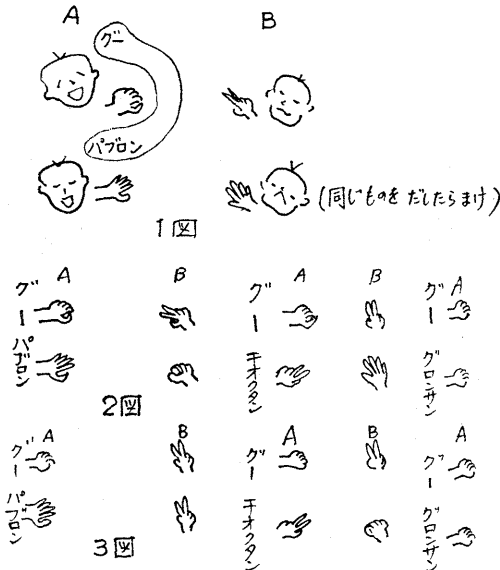 A
B
グー
パブロン
(同じものを だしたらまけ)
1図
A
B
A
B
A
グー
グー
グー
パブロン
チオクタン
グロンサン
2図
A
B
A
B
A
グー
グー
グー
パブロン
チオクタン
グロンサン
3図